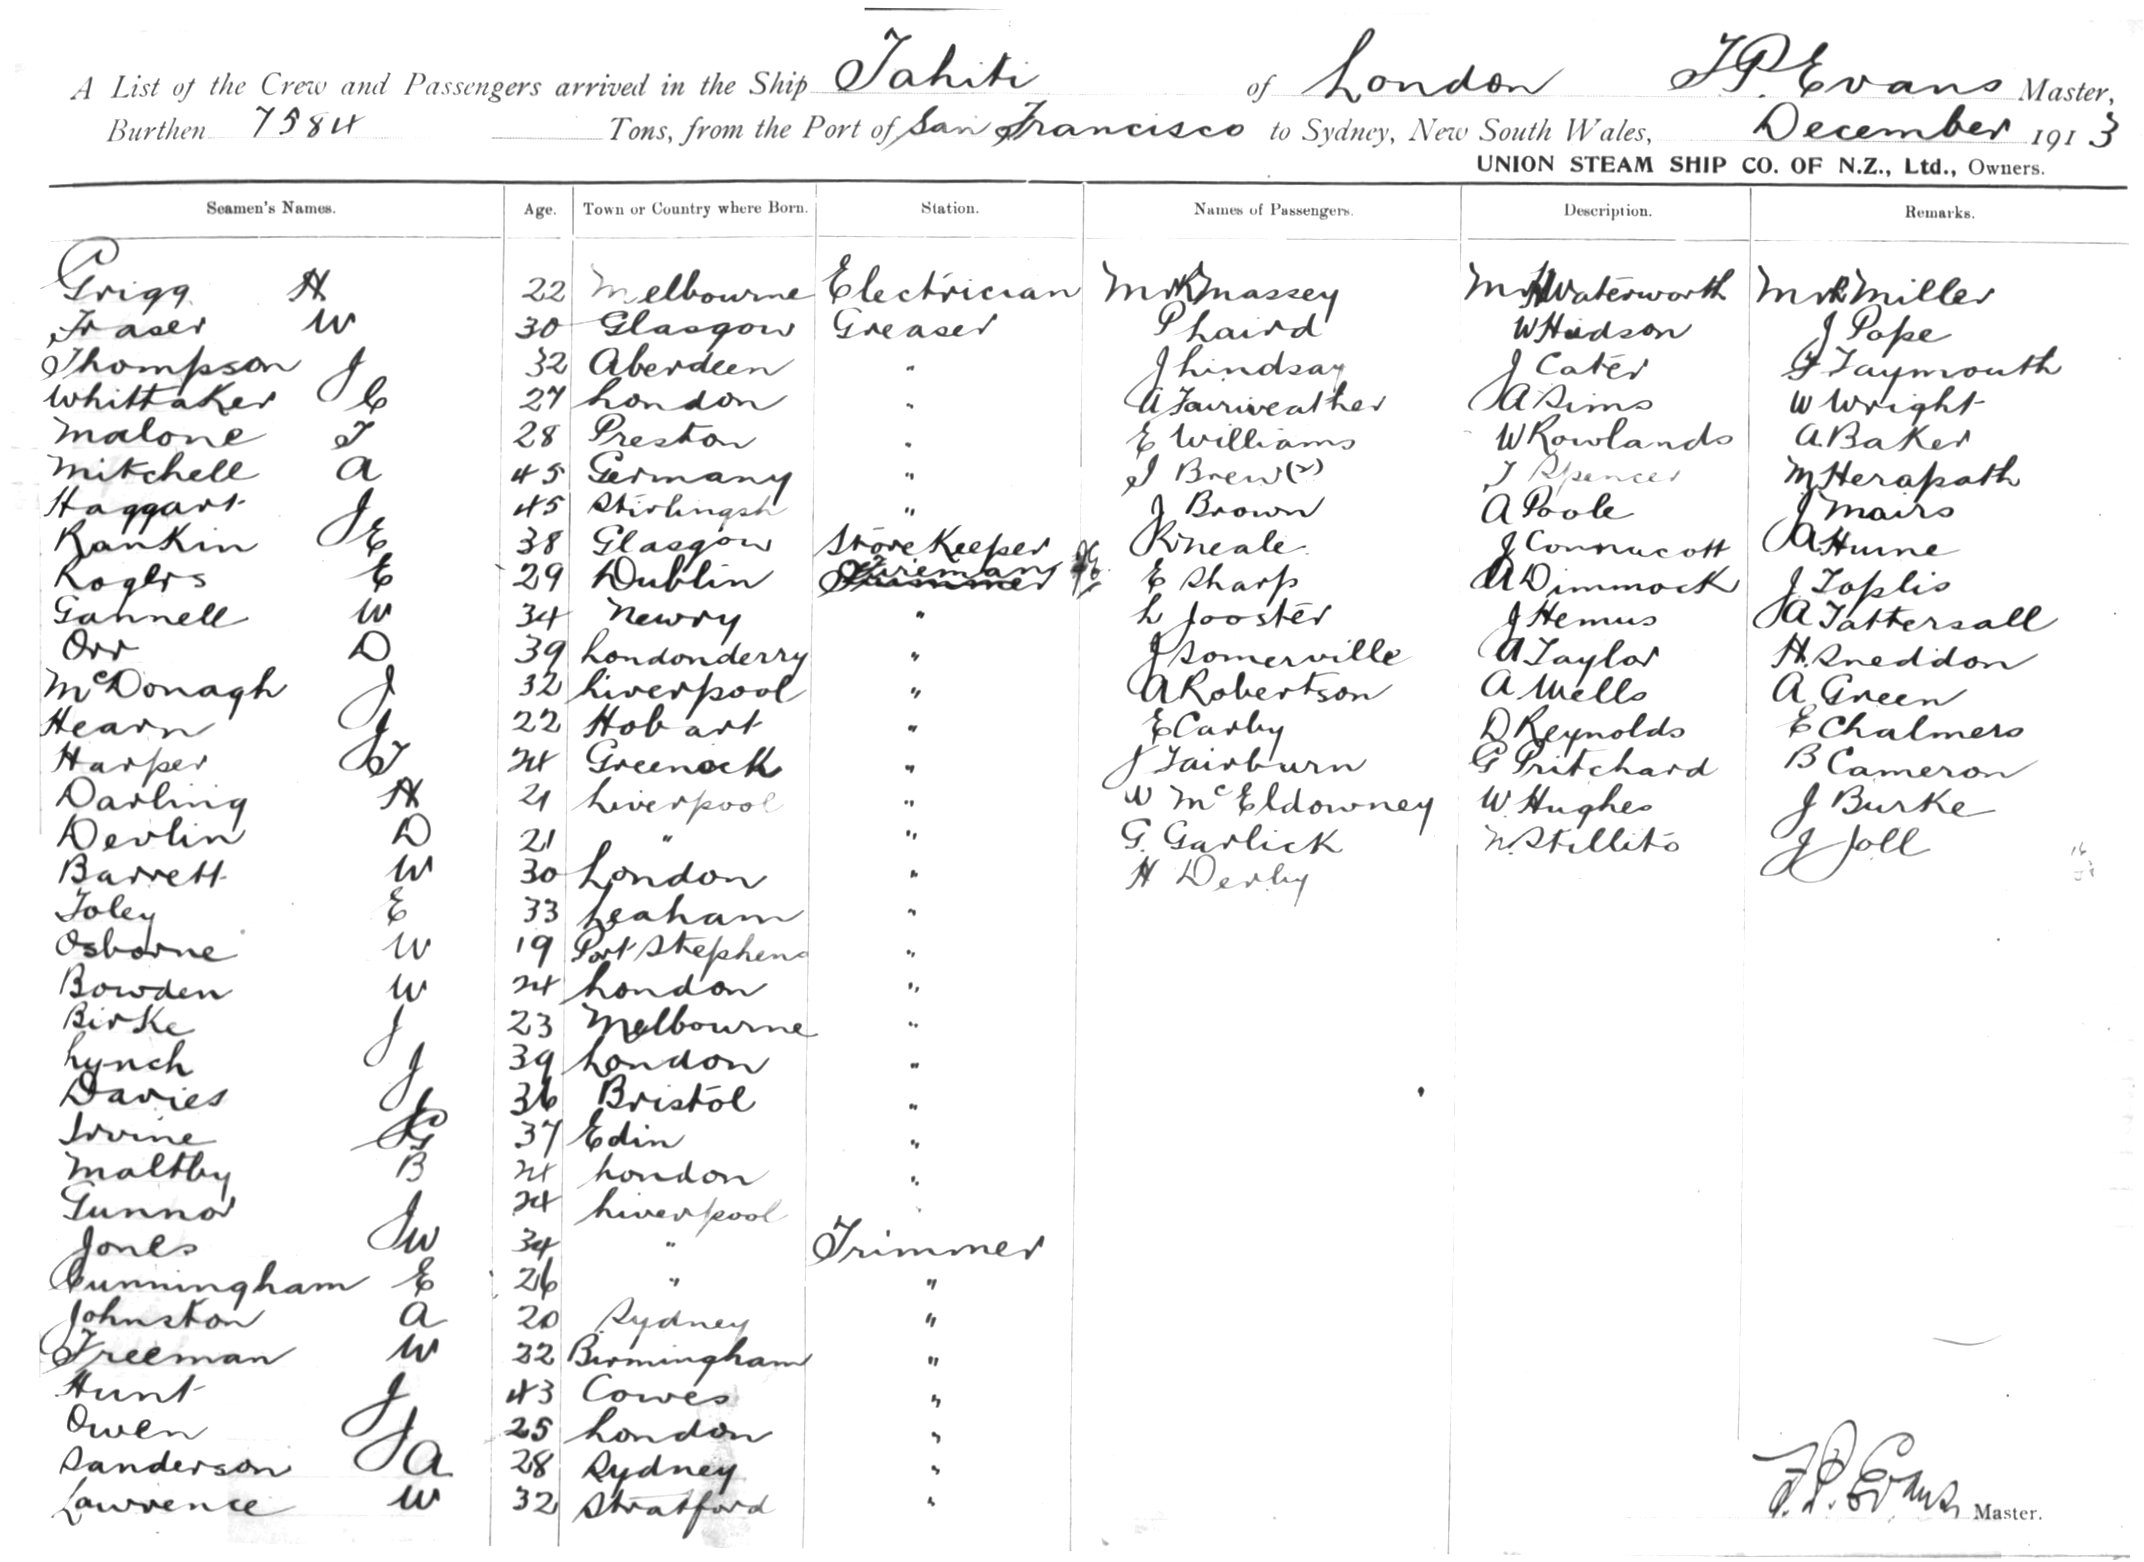 A List of the Crew and Passengers arrived in the Ship Tahiti of London F.P. Evans Master,
Burthen 7584 Tons, from the Port of San Francisco to Sydney, New South Wales, December 1913
UNION STEAM SHIP CO. OF N.Z., Ltd., Owners.
Seamen's Names. Age. Town or Country where Born. Station. Names of Passengers. Description. Remarks.
Grigg H 22 Melbourne Electrician Mr Massey Mr Waterworth Mr Miller
Fraser W 30 Glasgow Greaser P Laird W Hudson J Pope
Thompson J 32 Aberdeen " J Lindsay J Cater F Taymouth
Whittaker C 27 London " A Fairweather A Sims W Wright
Malone T 28 Preston " E Williams W Rowlands A Baker
Mitchell A 45 Germany " J Brew (2) J Spencer M Herapath
Haggart J 45 Stirlingsh " J Brown A Poole J Mairs
Rankin J E 38 Glasgow Store Keeper R Neale J Connucott A Hume
Rogers E 29 Dublin Fireman E Sharp A Dimmock J Toplis
Gannell W 34 Newry " L Jooster J Hemus A Tattersall
Orr D 39 Londonderry " J Somerville A Taylor H. Sneddon
McDonagh J 32 Liverpool " A Robertson A Wells A Green
Hearn J 22 Hobart " E Carby D Reynolds E Chalmers
Harper T 24 Greenock " J Fairburn G Pritchard B Cameron
Darling H 21 Liverpool " W McEldowney W. Hughes J Burke
Devlin D 21 " " G. Garlick N. Stillito J Joll
Barrett W 30 London " H Derby
Foley E 33 Leaham "
Osborne W 19 Port Stephens "
Bowden W 24 London "
Birke J 23 Melbourne "
Lynch J 39 London "
Davies J 36 Bristol "
Irvine G 37 Edin "
Maltby B 24 London "
Gunnor 24 Liverpool "
Jones J W 34 " Trimmer
Cunningham E 26 " "
Johnston A 20 Sydney "
Freeman W 22 Birmingham "
Hunt J 43 Cowes "
Owen J 25 London "
Sanderson J A 28 Sydney "
Lawrence W 32 Stratford "
F.P. Evans Master.